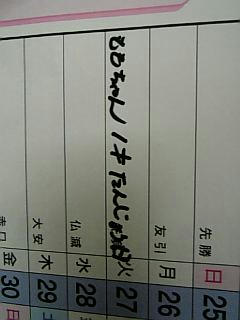 25 日 先勝
26 月 友引
27 火 ももちゃん 1才 たんじょうび
28 水 仏滅
29 木 大安
30 金